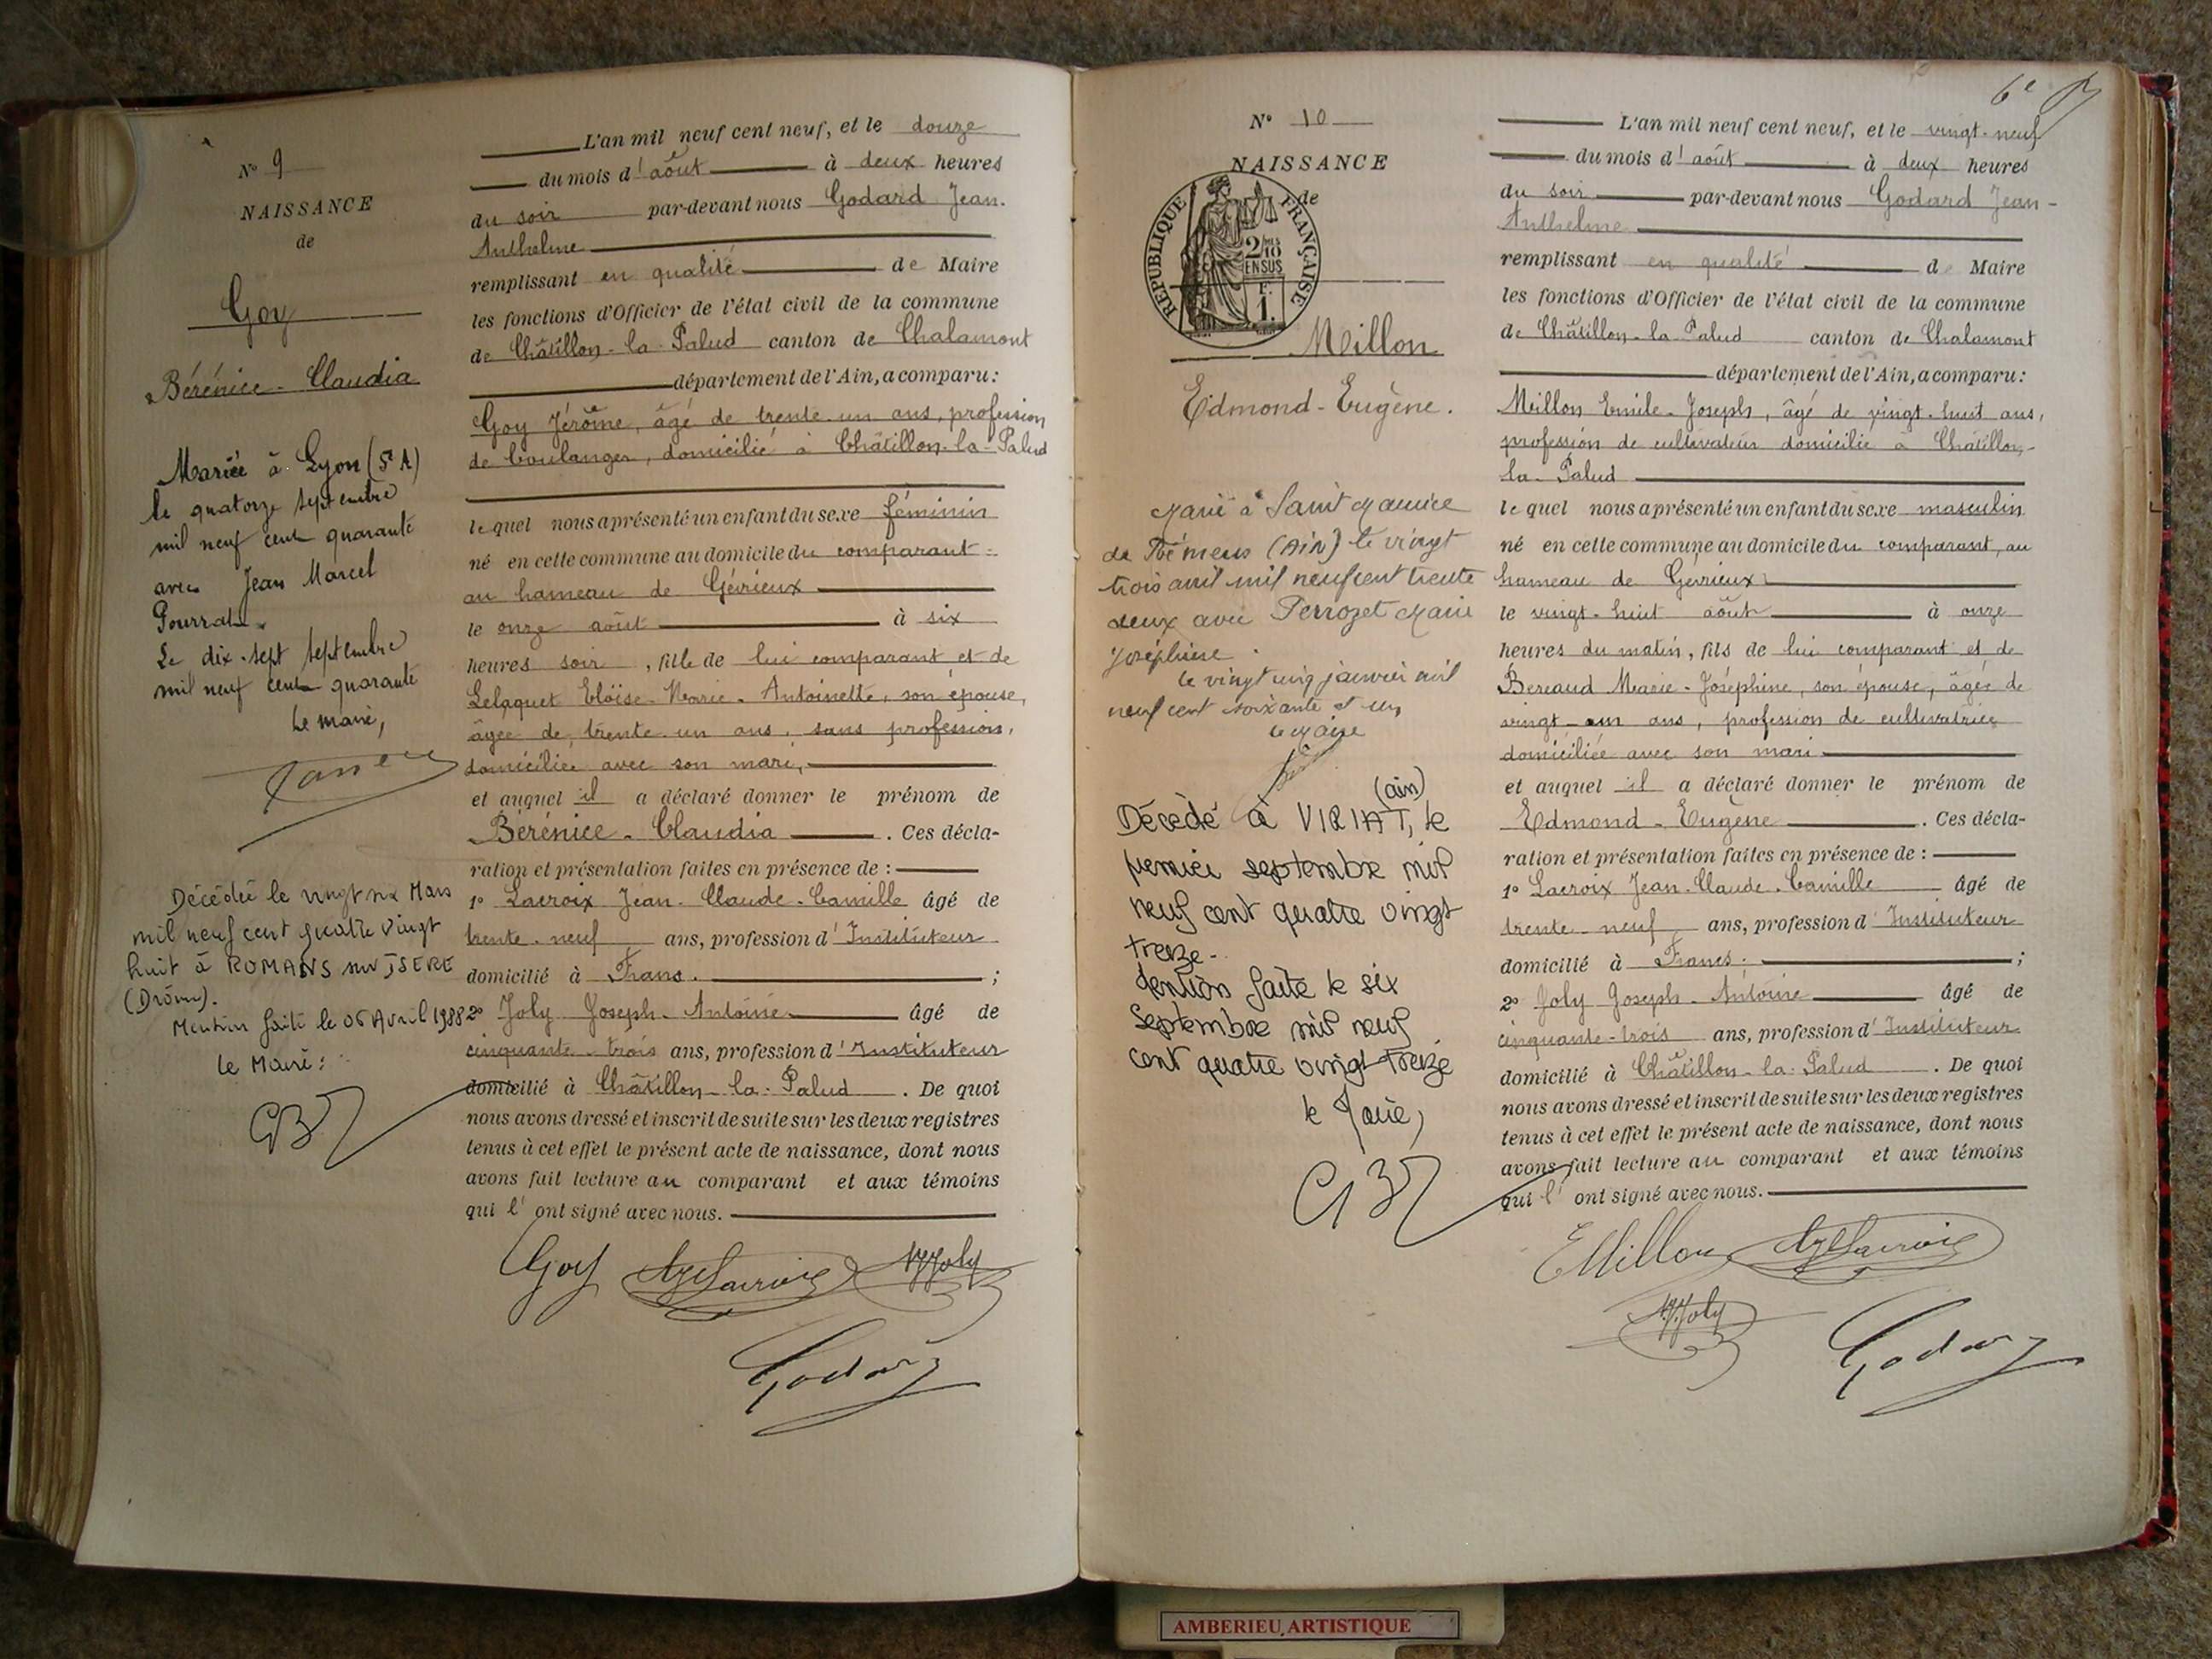 Nº 9
NAISSANCE
de
Goy
Bérénice - Claudia
Mariée à Lyon (5e A)
le quatorze septembre
mil neuf cent quarante
avec Jean Marcel
Pourrat.
Le dix-sept septembre
mil neuf cent quarante
Le maire,
Décédée le vingt six Mars
mil neuf cent quatre vingt
huit à ROMANS sur ISERE
(Drôme).
Mention faite le 06 Avril 1988
le Maire :
L'an mil neuf cent neuf, et le douze
du mois d'août à deux heures
du soir par-devant nous Godard Jean-
Anthelme
remplissant en qualité de Maire
les fonctions d'Officier de l'état civil de la commune
de Châtillon-la-Palud canton de Chalamont
département de l'Ain, a comparu :
Goy Jérôme, âgé de trente-un ans, profession
de boulanger, domicilié à Châtillon-la-Palud
lequel nous a présenté un enfant du sexe féminin
né en cette commune au domicile du comparant
au hameau de Gévrieux
le onze août à six
heures soir, fille de lui comparant et de
Lelaquet Eloïse-Marie-Antoinette, son épouse,
âgée de trente-un ans, sans profession,
domiciliée avec son mari,
et auquel il a déclaré donner le prénom de
Bérénice - Claudia . Ces décla-
ration et présentation faites en présence de :
1º Lacroix Jean-Claude-Camille âgé de
trente-neuf ans, profession d'Instituteur
domicilié à Frans. ;
2º Joly Joseph-Antoine âgé de
cinquante-trois ans, profession d'Instituteur
domicilié à Châtillon-la-Palud . De quoi
nous avons dressé et inscrit de suite sur les deux registres
tenus à cet effet le présent acte de naissance, dont nous
avons fait lecture au comparant et aux témoins
qui l'ont signé avec nous.
Goy Lacroix Joly
Godard
6e
Nº 10
NAISSANCE
de
RÉPUBLIQUE FRANÇAISE
2/10
EN SUS
F.
1.
Millon
Edmond-Eugène.
Marié à Saint Maurice
de Rémens (Ain) le vingt
trois avril mil neuf cent trente
deux avec Perrozet Marie
Joséphine.
le vingt cinq janvier mil
neuf cent soixante et un
le Maire
Décédé à VIRIAT, (ain) le
premier septembre mil
neuf cent quatre vingt
treize.
Mention faite le six
Septembre mil neuf
cent quatre vingt treize
le Maire,
L'an mil neuf cent neuf, et le vingt-neuf
du mois d'août à deux heures
du soir par-devant nous Godard Jean-
Anthelme
remplissant en qualité de Maire
les fonctions d'Officier de l'état civil de la commune
de Châtillon-la-Palud canton de Chalamont
département de l'Ain, a comparu :
Millon Emile-Joseph, âgé de vingt-huit ans,
profession de cultivateur domicilié à Châtillon-
la-Palud
lequel nous a présenté un enfant du sexe masculin
né en cette commune au domicile du comparant, au
hameau de Gévrieux
le vingt-huit août à onze
heures du matin, fils de lui comparant et de
Bereaud Marie-Joséphine, son épouse, âgée de
vingt-un ans, profession de cultivatrice
domiciliée avec son mari
et auquel il a déclaré donner le prénom de
Edmond-Eugène . Ces décla-
ration et présentation faites en présence de :
1º Lacroix Jean-Claude-Camille âgé de
trente-neuf ans, profession d'Instituteur
domicilié à Frans. ;
2º Joly Joseph-Antoine âgé de
cinquante-trois ans, profession d'Instituteur
domicilié à Châtillon-la-Palud . De quoi
nous avons dressé et inscrit de suite sur les deux registres
tenus à cet effet le présent acte de naissance, dont nous
avons fait lecture au comparant et aux témoins
qui l'ont signé avec nous.
EMillon Lacroix
Joly Godard
AMBERIEU ARTISTIQUE